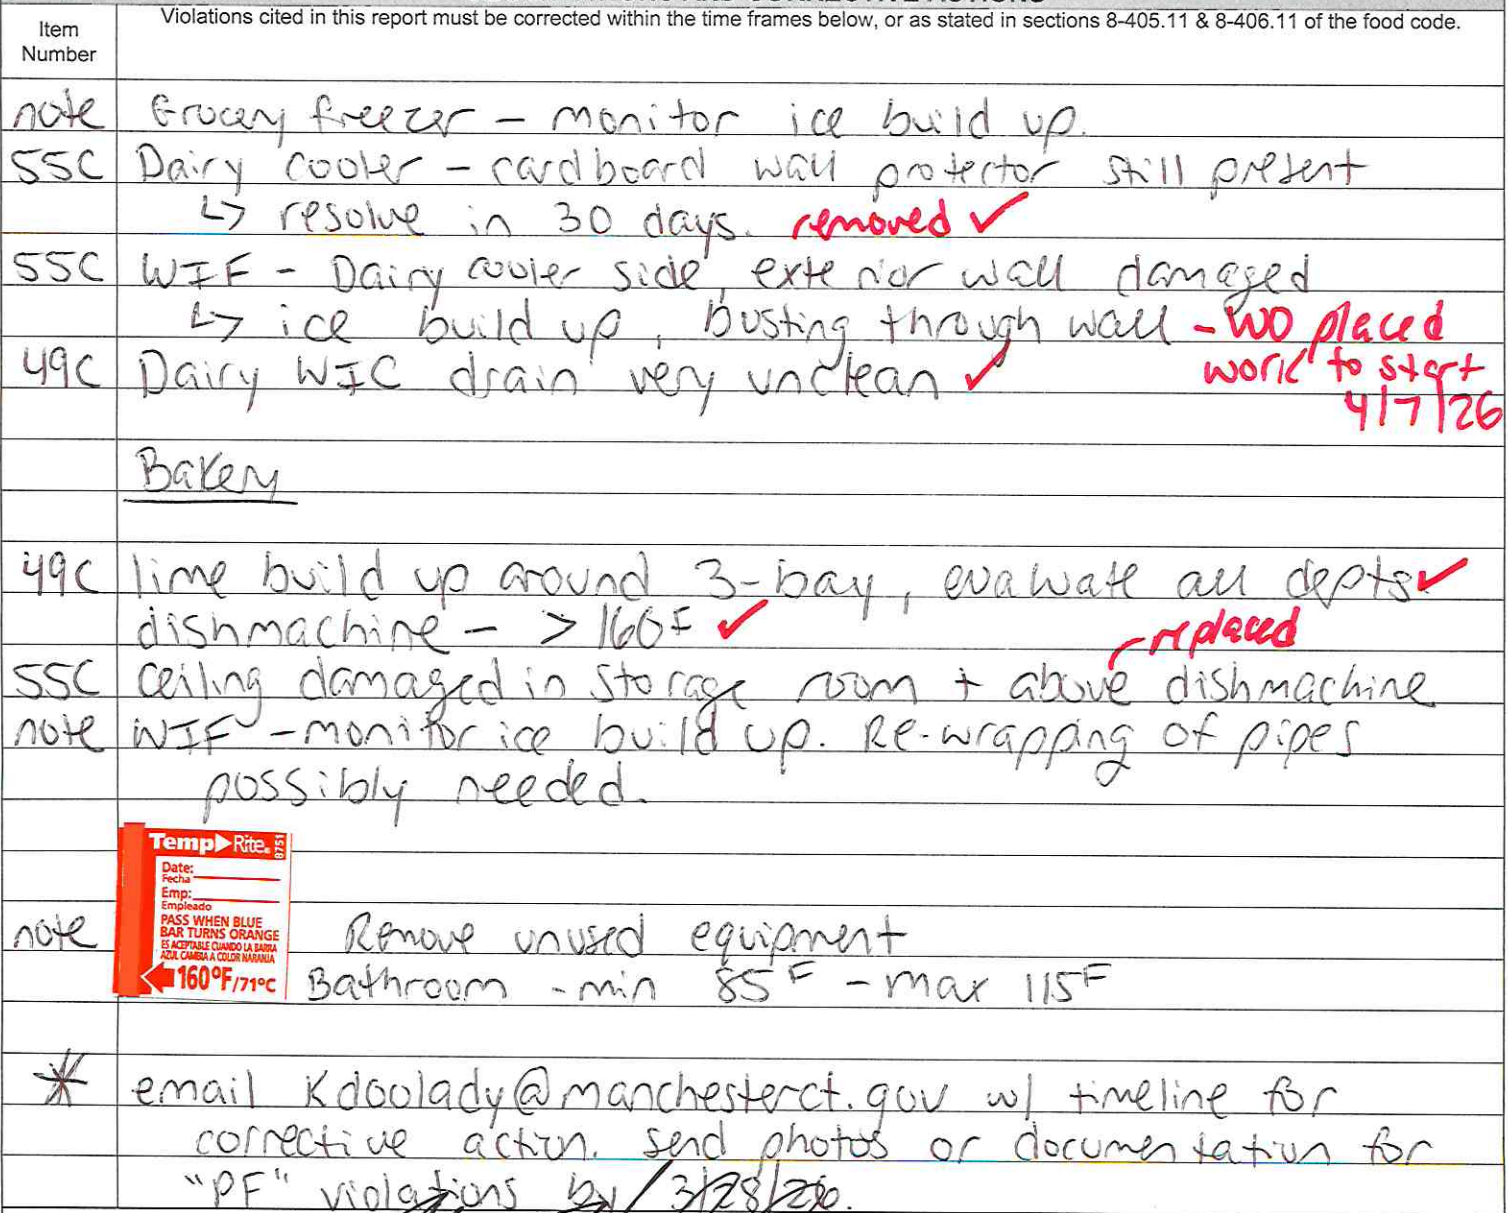 Item Number
Violations cited in this report must be corrected within the time frames below, or as stated in sections 8-405.11 & 8-406.11 of the food code.
note Grocery freezer - monitor ice build up.
55C Dairy cooler - cardboard wall protector still present
↳ resolve in 30 days. removed ✓
55C WIF - Dairy cooler side, exterior wall damaged
↳ ice build up, busting through wall - WO placed
work to start
49C Dairy WIC drain very unclean ✓
4/7/26
Bakery
49C lime build up around 3-bay, evaluate all depts ✓
dishmachine - > 160F ✓
replaced
55C ceiling damaged in storage room + above dishmachine
note WIF - monitor ice build up. Re-wrapping of pipes
possibly needed.
Temp Rite. 8751
Date:
Fecha
Emp:
Empleado
PASS WHEN BLUE
BAR TURNS ORANGE
ES ACEPTABLE CUANDO LA BARRA
AZUL CAMBIA A COLOR NARANJA
160°F/71°C
note Remove unused equipment
Bathroom - min 85F - max 115F
* email Kdoolady@manchesterct.gov w/ timeline for
corrective action. Send photos or documentation for
"PF" violations by 3/28/26.